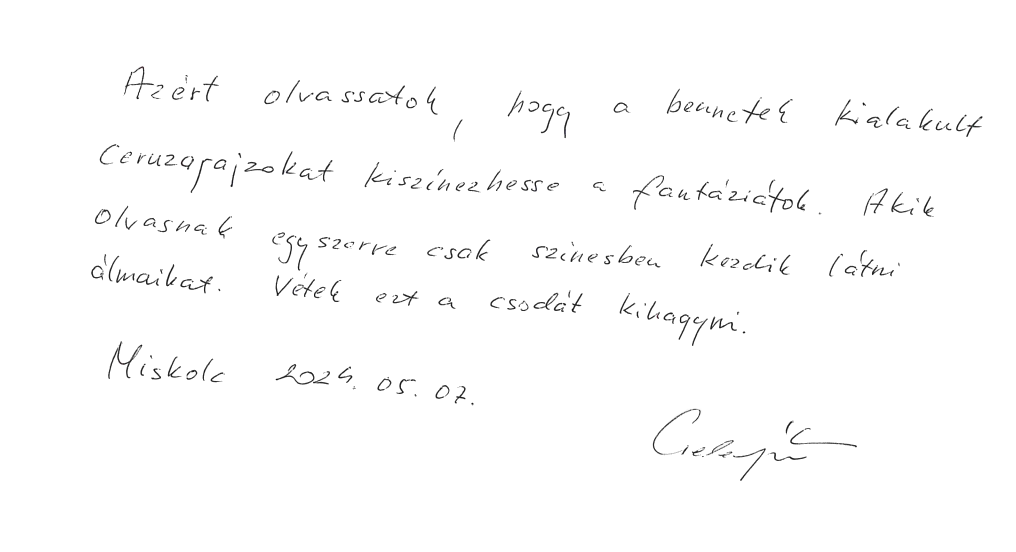 Azért olvassatok, hogy a bennetek kialakult
Ceruzarajzokat kiszínezhesse a fantáziátok. Akik
olvasnak egyszerre csak színesben kezdik látni
álmaikat. Vétek ezt a csodát kihagyni.
Miskolc 2024. 05. 07.